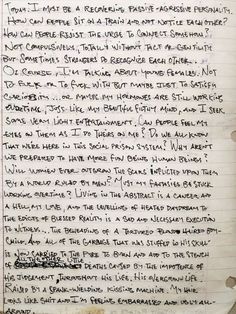 TODAY: I MUST BE A RECOVERING PASSIVE-AGGRESSIVE PERSONALITY.
HOW CAN PEOPLE SIT ON A TRAIN AND NOT NOTICE EACH OTHER?
HOW CAN PEOPLE RESIST THE URGE TO CONNECT SOMEHOW?
NOT COMPULSIVELY, TOTALLY WITHOUT TACT OR GENTILITY
BUT SOMETIMES STRANGERS DO RECOGNIZE EACH OTHER..
OF COURSE, I'M TALKING ABOUT YOUNG FEMALES. NOT
TO FUCK OR TO FUCK WITH BUT MAYBE JUST TO SATISFY
CURIOSITIES... OR MAYBE MY HORMONES ARE STILL WORKING
OVERTIME, JUST LIKE MY BEAUTIFUL FILTHY MIND, AND I SEEK
SOME VERY LIGHT ENTERTAINMENT. CAN PEOPLE FEEL MY
EYES ON THEM AS I DO THEIRS ON ME? DO WE ALL KNOW
THAT WE'RE HERE IN THIS SOCIAL PRISON SYSTEM? WHY AREN'T
WE PREPARED TO HAVE MORE FUN BEING HUMAN BEINGS?
WILL WOMEN EVER OUTGROW THE SCARS INFLICTED UPON THEM
BY A WORLD RULED BY MEN? MUST MY FANTASIES BE STUCK
WORKING OVERTIME? LIVING IN THE ABSTRACT IS A CANCER, AND
A HELL, MY LOVE, AND THE LEVELING OF HEATED DAYDREAMS
TO THE EDICTS OF BLESSED REALITY IS A SAD AND NECESSARY EXECUTION
TO WITNESS. THE BEHEADING OF A TORTURED HAIRED BOY-
CHILD. AND ALL OF THE GARBAGE THAT WAS STUFFED IN HIS SKULL
IS NOW CARRIED TO THE PYRE TO BURN AND ADD TO THE STENCH
OF DEATHS CAUSED BY THE IMPOTENCE OF
HIS JUDGEMENT THROUGHOUT HIS LIFE. HIS OVERGROWN LIFE
RAISED BY A SPANK-WIELDING KISSING MACHINE. MY HAIR
LOOKS LIKE SHIT AND I'M FEELING EMBARRASSED AND UGLY ALL-
AROUND.